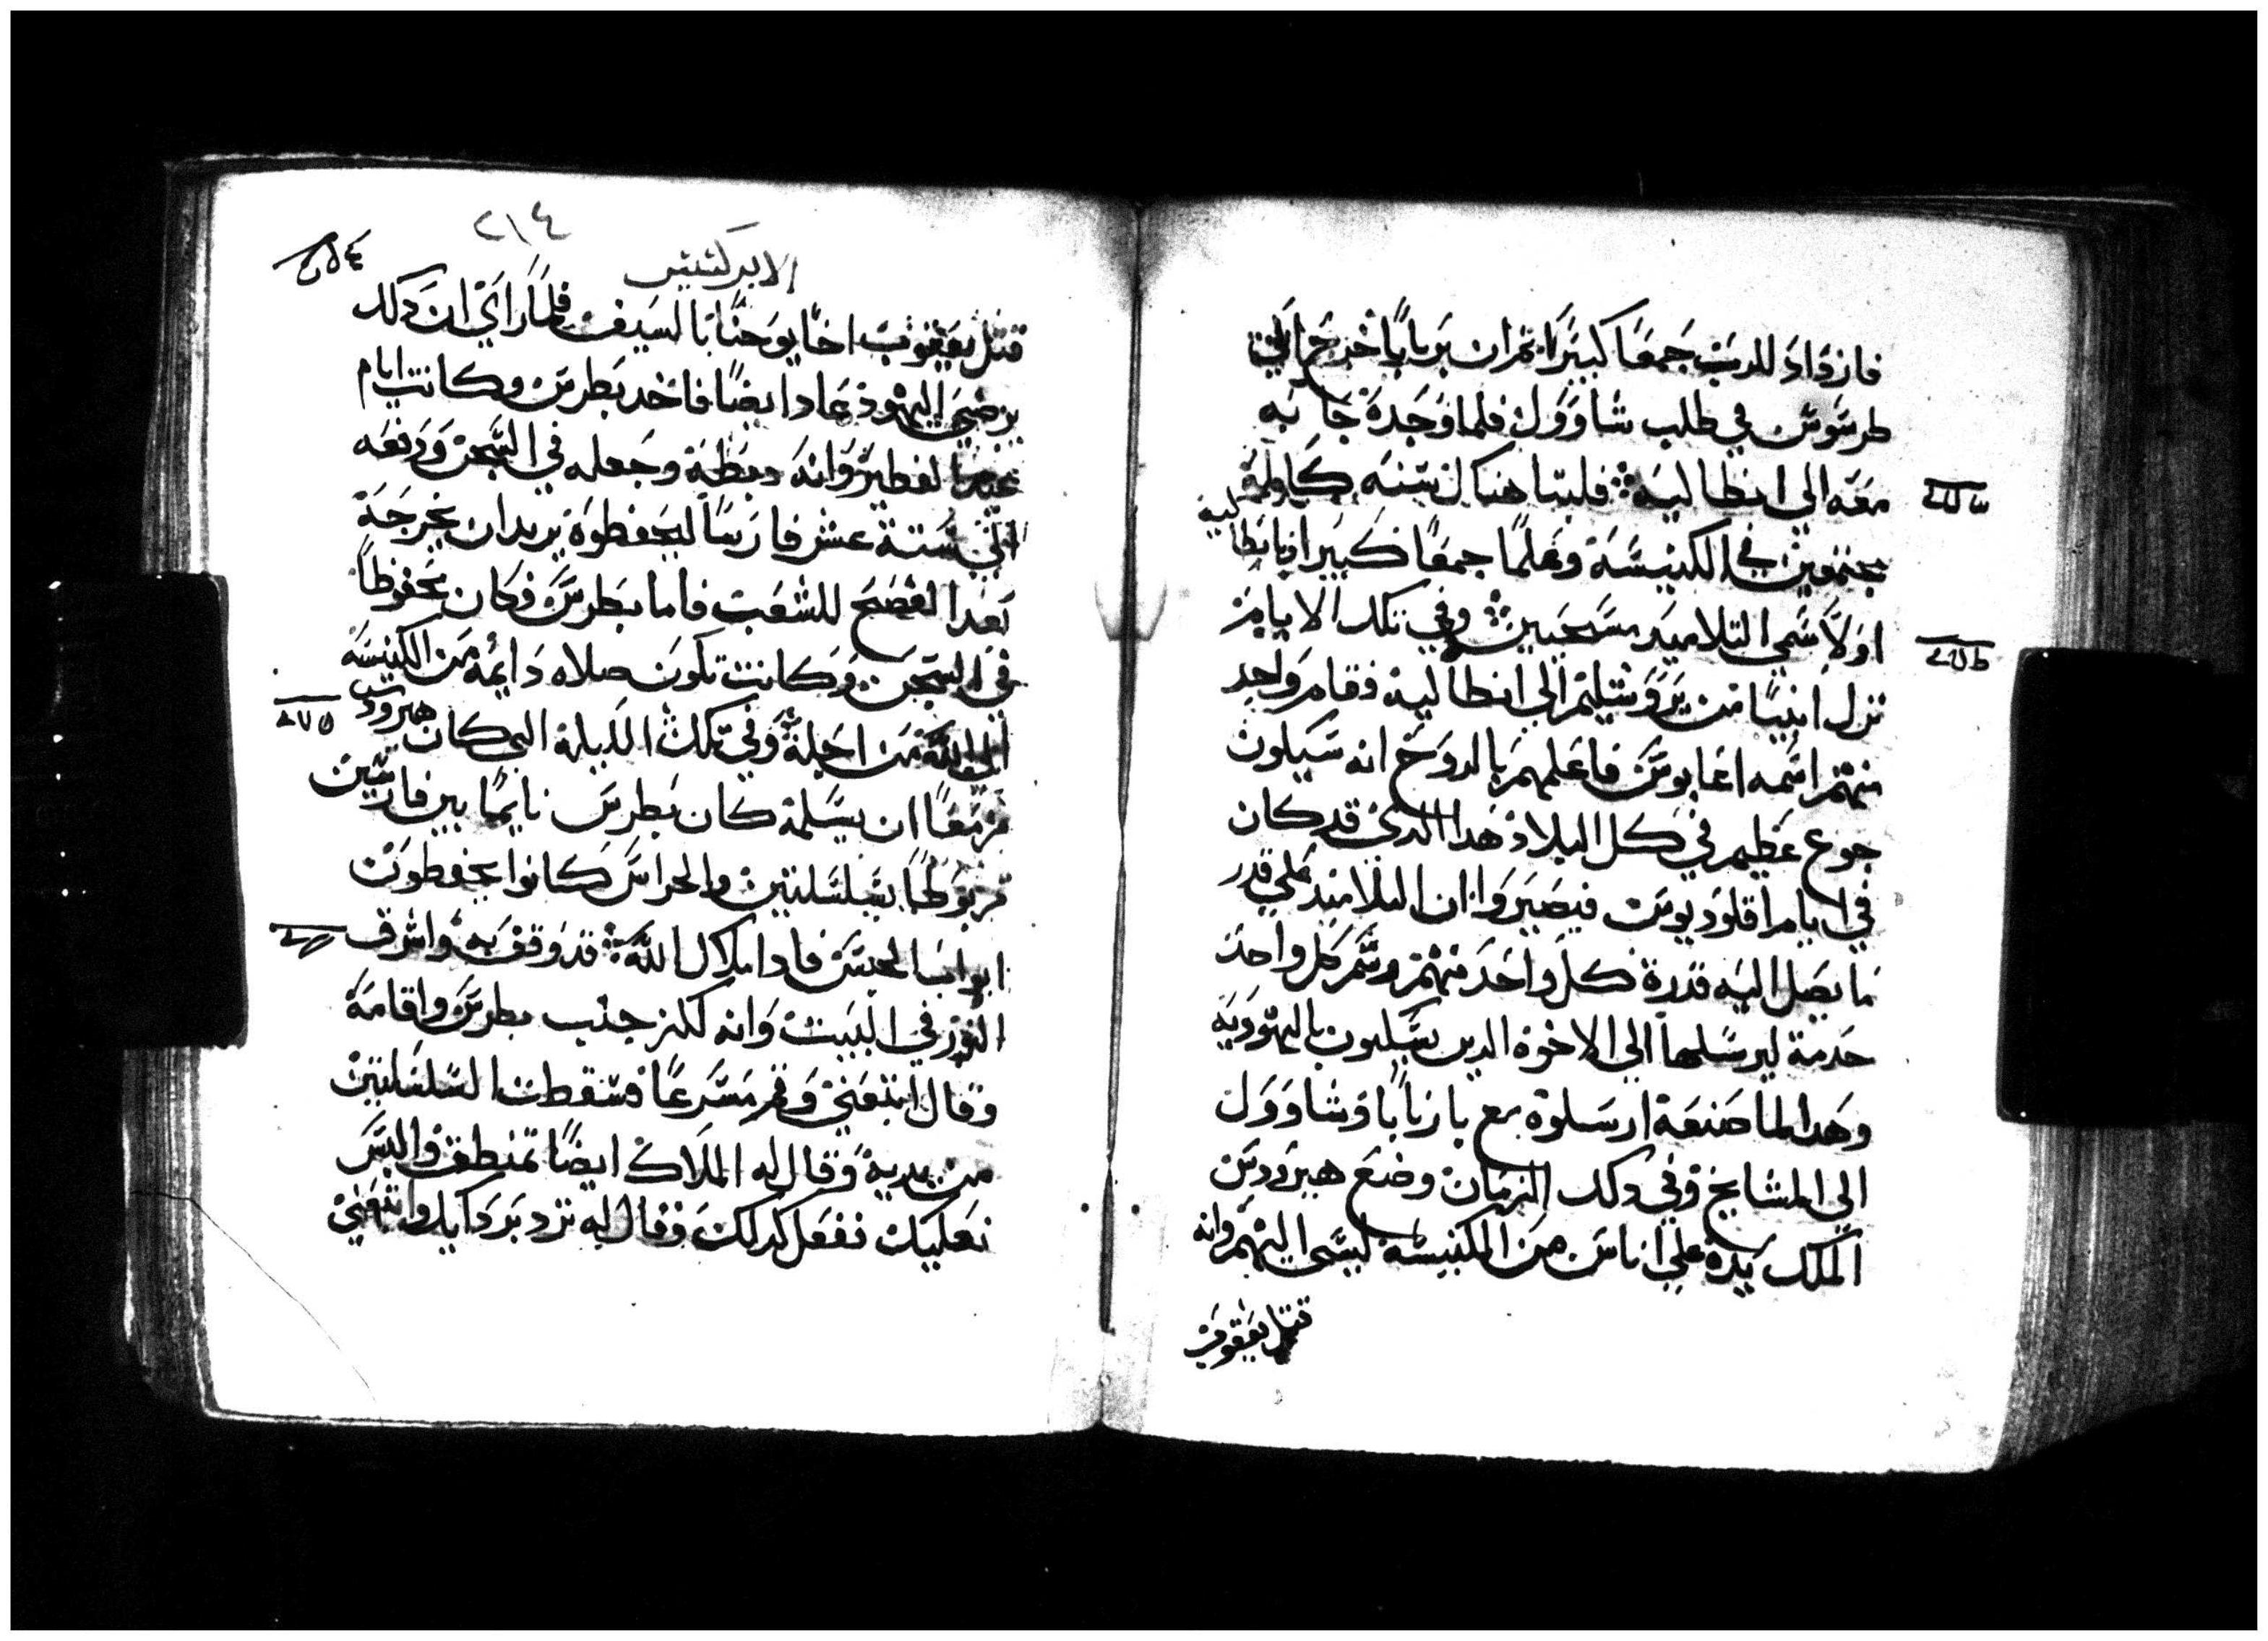 فازداد للرب جمعا كبيرا ثم ان برنابا خرج الي
طرسوس في طلب شاوول فلما وجده جا به
معه الي انطاليه فلبثا هناك سنه كامله
مجتمعين في الكنيسة وتعلما جمعا كبيرا
اولا سمي التلاميد مسيحيين وفي تلك الايام
نزل انبيا من يروشليم الي انطاليه فقام واحد
منهم اسمه اغابوس فاعلمهم بالروح انه سيكون
جوع عظيم في كل البلاد هدا الدي قد كان
في ايام اقلوديوس فيصيروا ان التلاميد علي قدر
ما يصل اليه قدرة كل واحد منهم وسم كل واحد
خدمة ليرسلها الي الاخوة الدين يسكنون باليهوديه
وهدا لما صنعه ارسلوه مع بارنابا وشاوول
الي المشايخ وفي دلك الزمان وضع هيرودس
الملك يده علي اناس من الكنيسه ليسي اليهم وانه
قتل يعقوب
٢١٤
الابركسيس
قتل يعقوب اخا يوحنا بالسيف فلما راي ان دلك
يرضي اليهود عاد ايضا فاخد بطرس وكانت ايام
الفطير وانه وجعله في السجن ودفعه
الي ستة عشر فارسا ليحفظوه يريد ان يخرجه
بعد الفصح للشعب فاما بطرس فكان محفوظا
في السجن وكانت تكون صلاه دايمه من الكنيسه
الي الله من اجله وفي تلك الليلة التي كان هيرودس
مزمعا ان يسلمه كان بطرس نايما بين فارسين
مربوطا بسلسلتين والحراس كانوا يحفظون
ابواب الحبس فادا ملاك الله قد وقف به واشرق
النور في البيت وانه لكز جنب بطرس واقامه
وقال اتبعني وقم مسرعا فسقطت السلسلتين
من يديه وقال له الملاك ايضا تمنطق والبس
نعليك ففعل كدلك وقال له تزد بردايك واتبعني